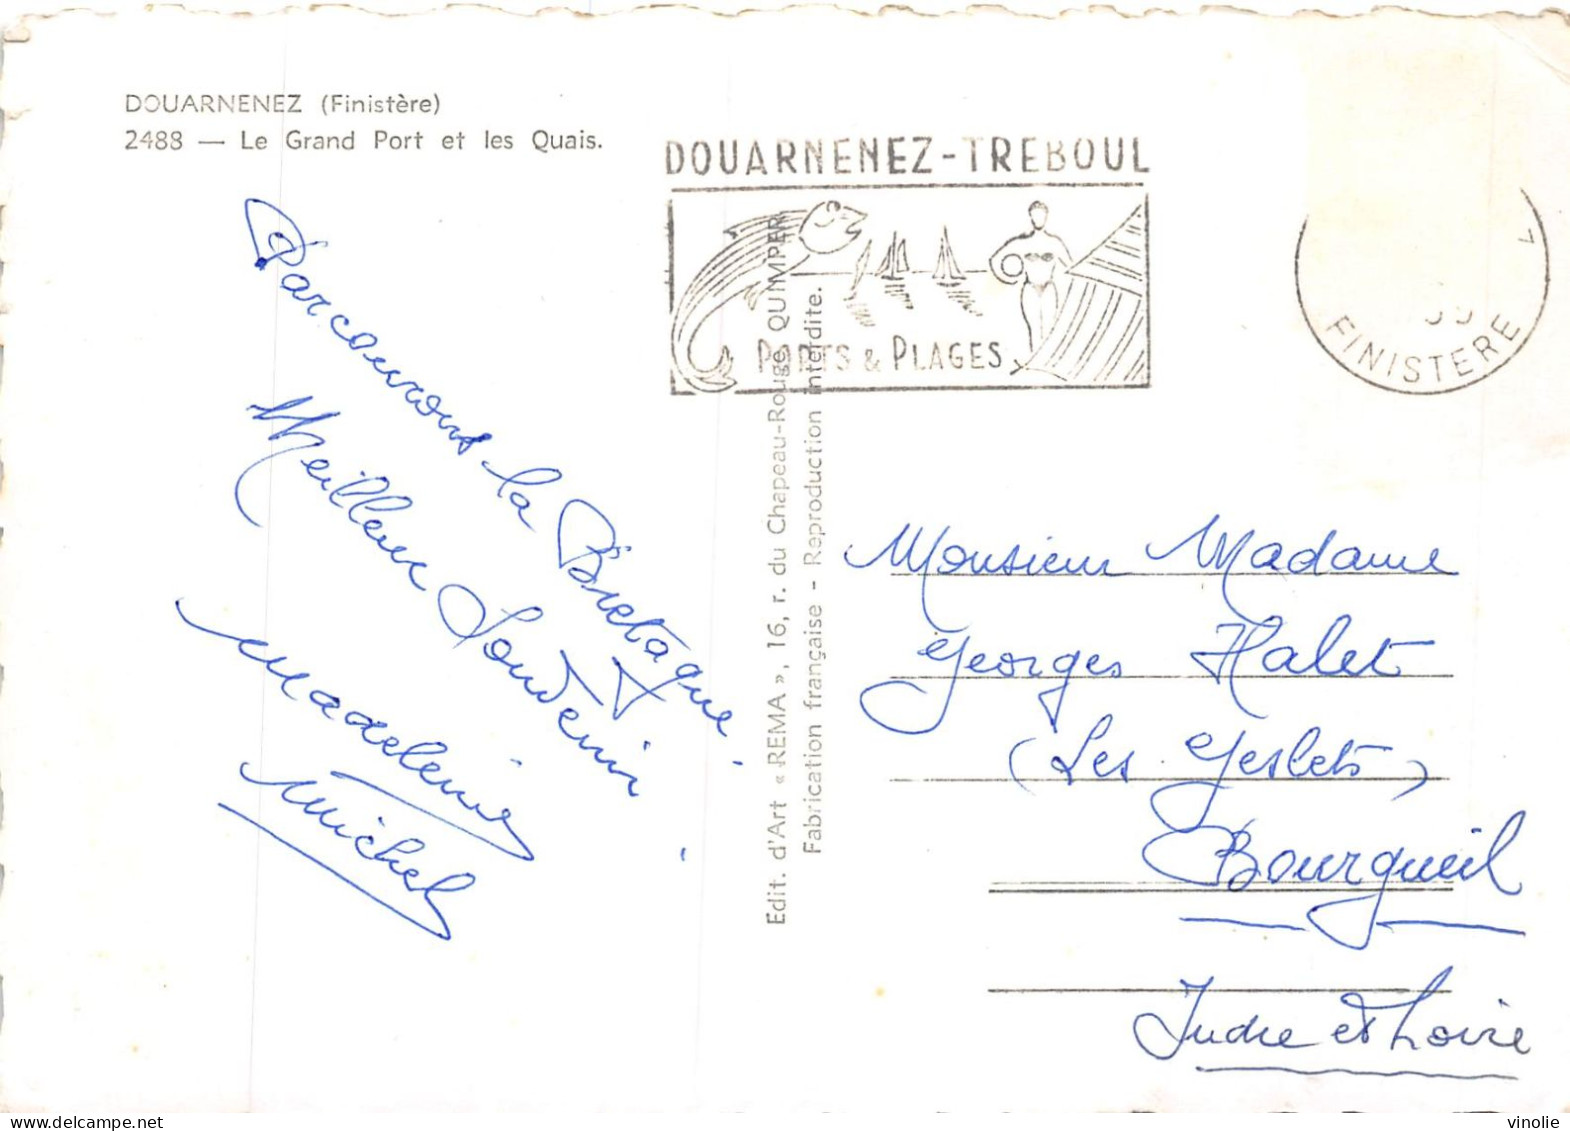 DOUARNENEZ (Finistère)
2488 — Le Grand Port et les Quais.
DOUARNENEZ-TREBOUL
PORTS & PLAGES
FINISTERE
Parcourons la Bretagne.
Meilleur Souvenir
Madeleine
Michel
Edit. d'Art « REMA », 16, r. du Chapeau-Rouge QUIMPER
Fabrication française - Reproduction interdite.
Monsieur Madame
Georges Halet
(Les Geslets)
Bourgueil
Indre et Loire
vinolie